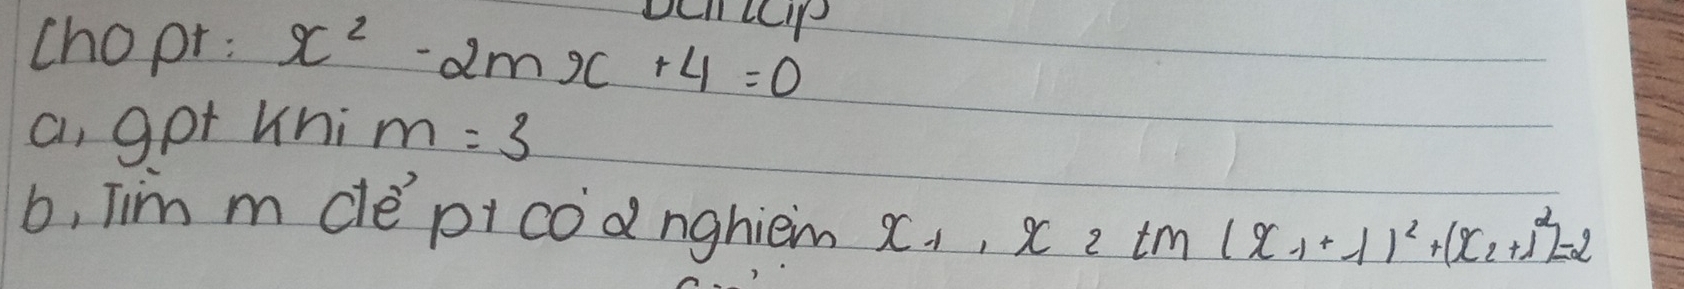 Cho pt: x² - 2mx + 4 = 0
a, gpt khi m = 3
b, Tìm m để pt có 2 nghiệm x₁, x₂ tm (x₁+1)²+(x₂+1)²=2